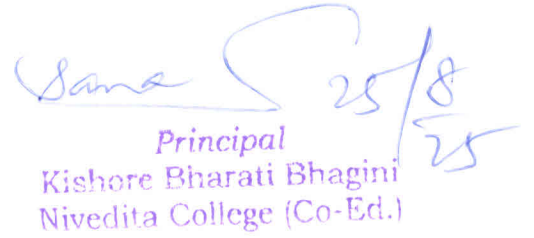 25/8/25
Principal
Kishore Bharati Bhagini
Nivedita College (Co-Ed.)